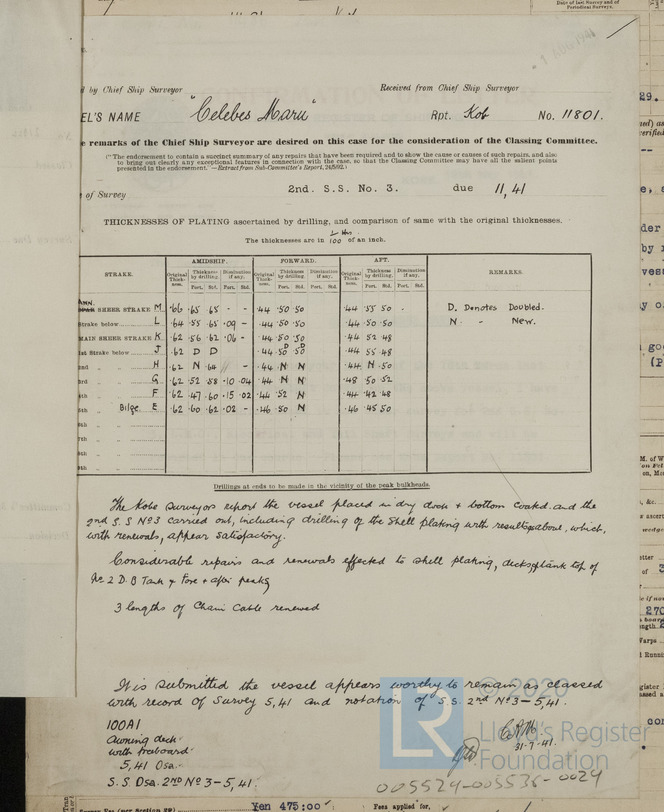 Date of last Survey and of
Periodical Surveys.
d by Chief Ship Surveyor
Received from Chief Ship Surveyor
EL'S NAME "Celebes Maru" Rpt. Kob No. 11801.
e remarks of the Chief Ship Surveyor are desired on this case for the consideration of the Classing Committee.
(*The endorsement to contain a succinct summary of any repairs that have been required and to show the cause or causes of such repairs, and also
to bring out clearly any exceptional features in connection with the case, so that the Classing Committee may have all the salient points
presented in the endorsement.*—Extract from Sub-Committee's Report, 24/5/92.)
of Survey 2nd. S.S. No. 3. due 11,41
THICKNESSES OF PLATING ascertained by drilling, and comparison of same with the original thicknesses.
The thicknesses are in 1/100 ths of an inch.
STRAKE. AMIDSHIP. FORWARD. AFT. REMARKS.
Original Thickness. Thickness by drilling. Diminution if any. Original Thickness. Thickness by drilling. Diminution if any. Original Thickness. Thickness by drilling. Diminution if any.
Port. Std. Port. Std. Port. Std. Port. Std. Port. Std. Port. Std.
SHEER STRAKE M .66 .65 .65 - - .44 .50 50 .44 .55 50 D. Denotes Doubled.
Strake below L .64 .55 .65 .09 - .44 .50 .50 .44 .50 50 N. - New.
MAIN SHEER STRAKE K .62 .56 .62 .06 - .44 50 50 .44 52 48
1st Strake below J .62 D D .44 D 50 D 50 .44 55 48
2nd „ „ H .62 N 64 // - .44 N N .44 N .50
3rd „ „ G .62 .52 .58 .10 .04 .44 N N .48 50 52
4th „ „ F .62 .47 .60 .15 .02 .44 52 N .44 .42 48
5th „ Bilge. E .62 60 .62 .02 - .46 .50 N .46 .45 50
6th „ „
7th „ „
8th „ „
9th „ „
Drillings at ends to be made in the vicinity of the peak bulkheads.
The Kobe Surveyors report the vessel placed in dry dock & bottom coated and the
2nd S.S No3 carried out, including drilling of the shell plating with results as above, which,
with renewals, appear satisfactory.
Considerable repairs and renewals effected to shell plating, decks, tank top of
No 2 D.B Tank & Fore & after peaks
3 lengths of Chain Cable renewed
It is submitted the vessel appears worthy to remain as classed
with record of Survey 5,41 and notation of S.S. 2nd No 3 - 5,41.
100A1
Awning deck
with freeboard
5,41 Osa.
S.S Osa. 2ND No 3 - 5,41.
31.7.41.
© 2020
LR
Lloyd's Register
Foundation
005529-005536-0029
Yen 475:00
Fees applied for,